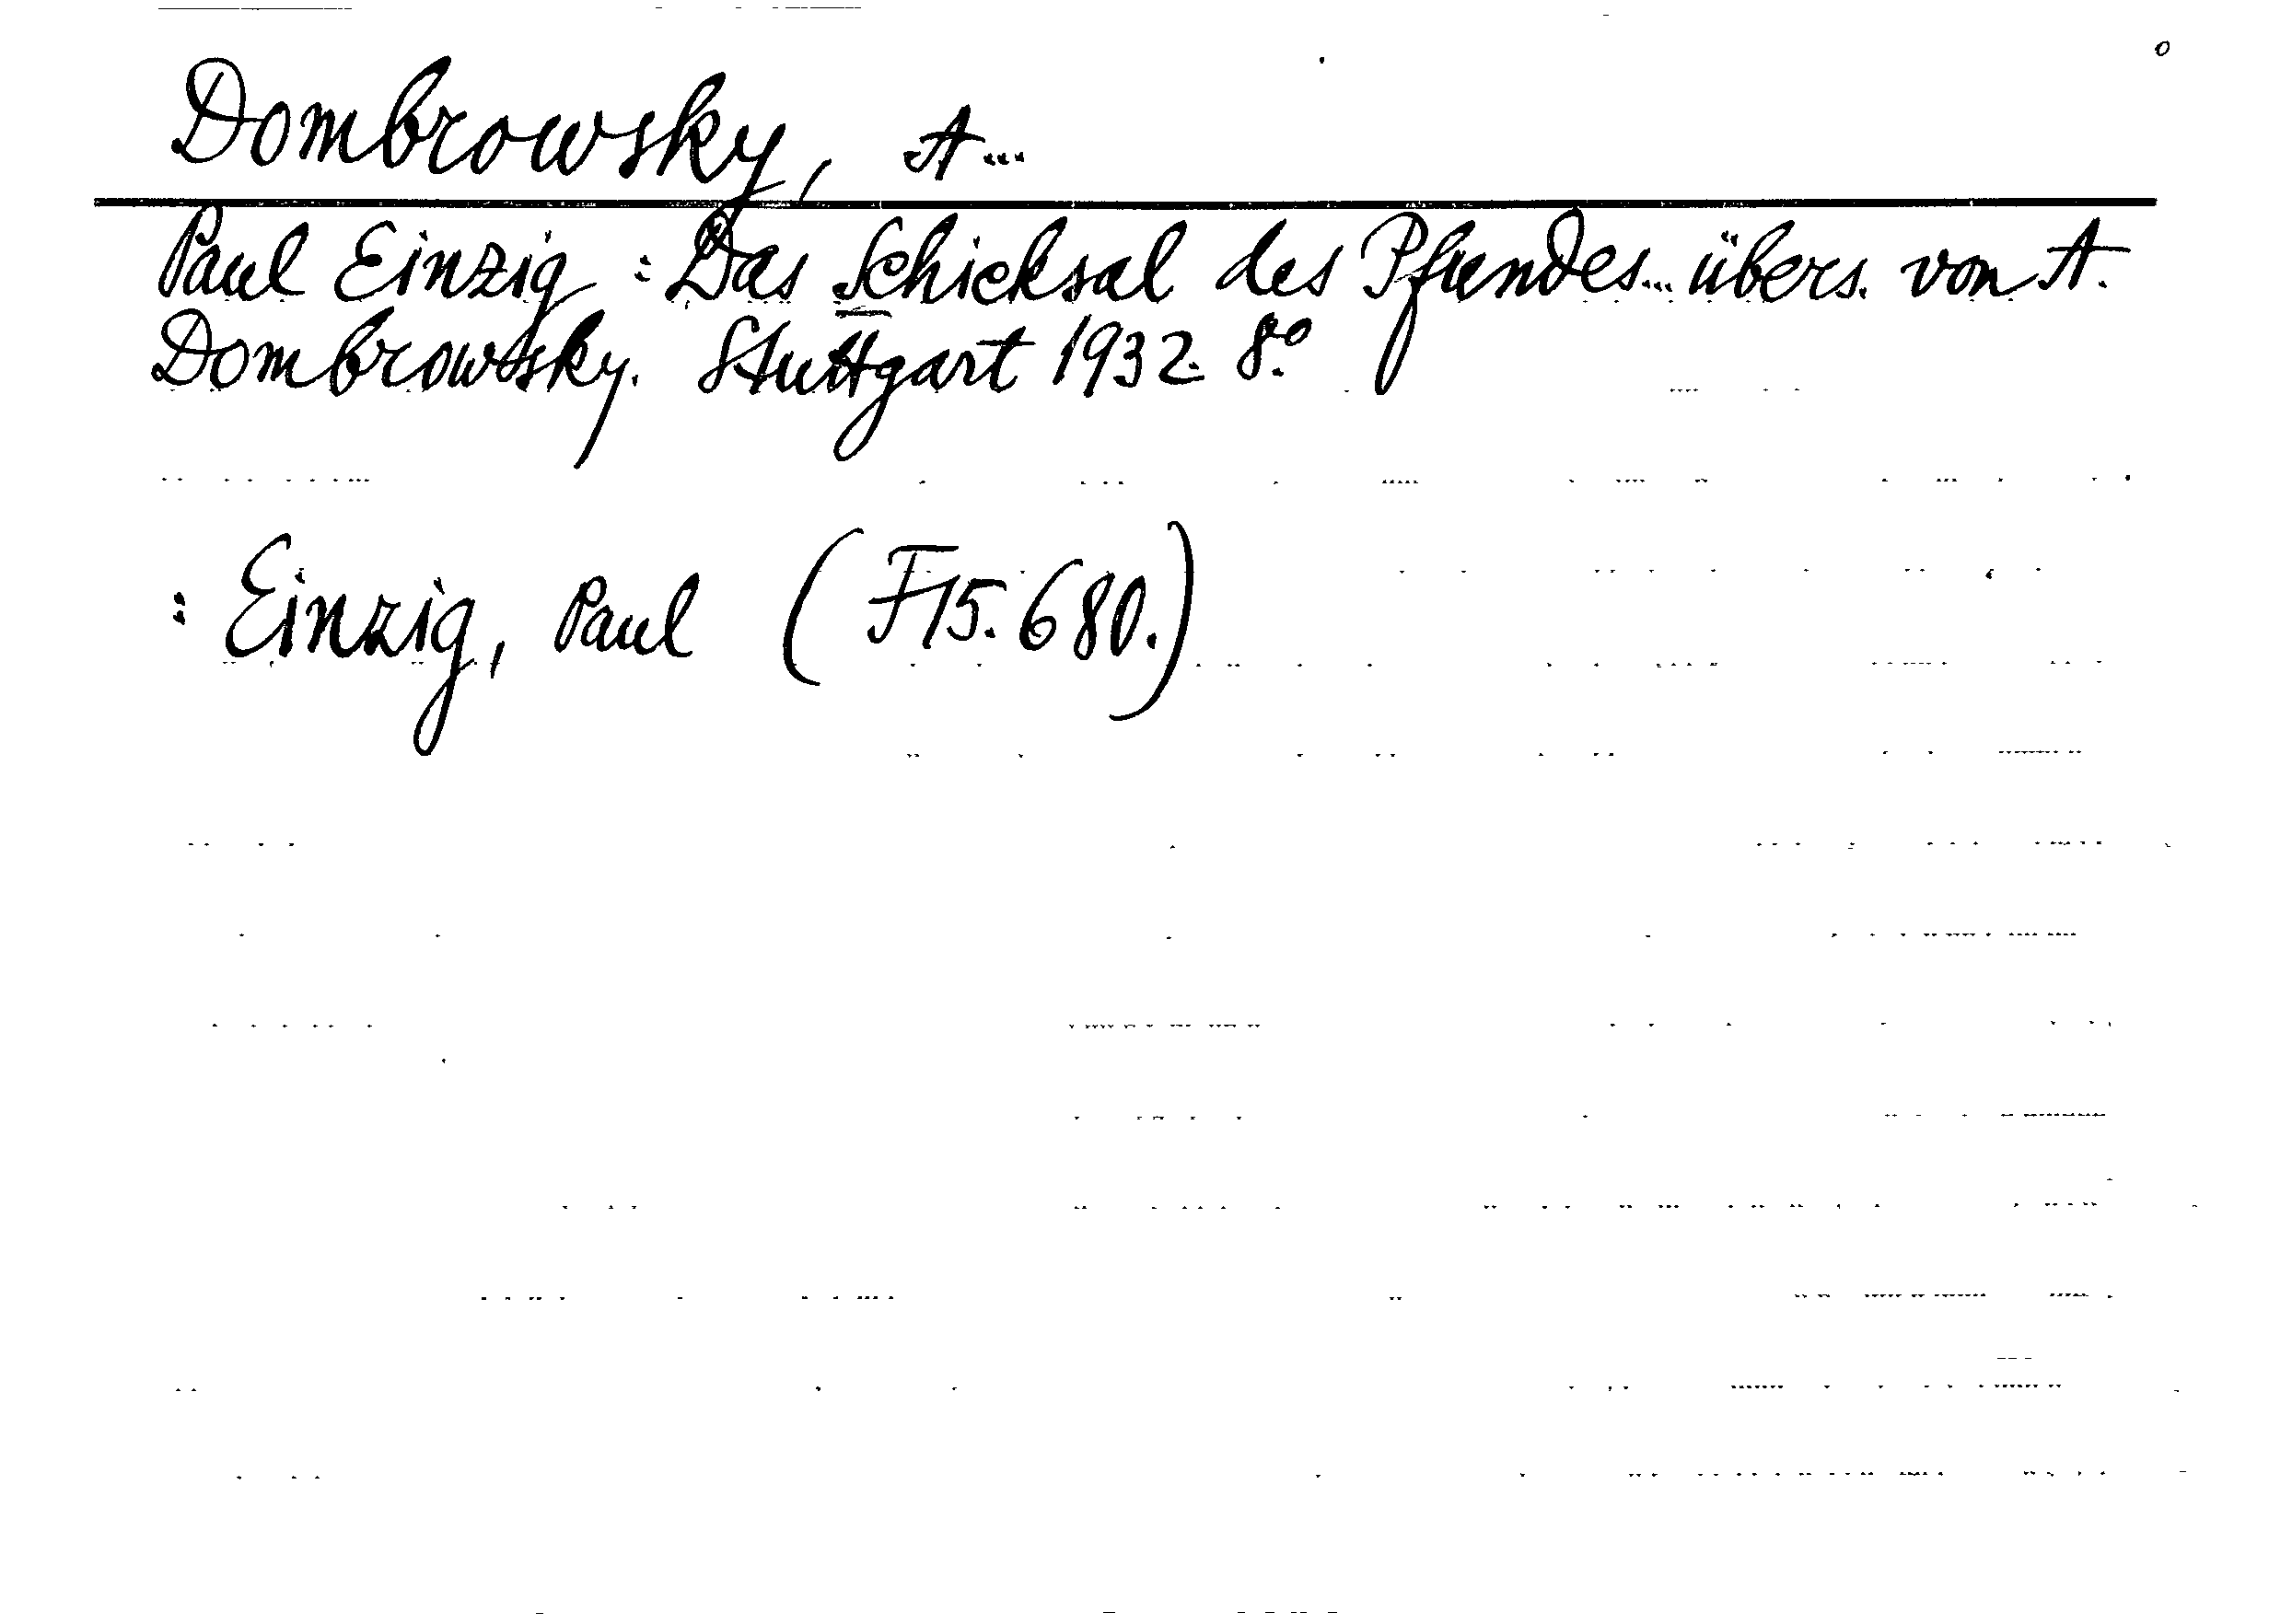 Dombrowsky, A...
Paul Einzig : Das Schicksal des Pfundes... übers. von A.
Dombrowsky. Stuttgart 1932. 8.°
: Einzig, Paul (F15.680.)